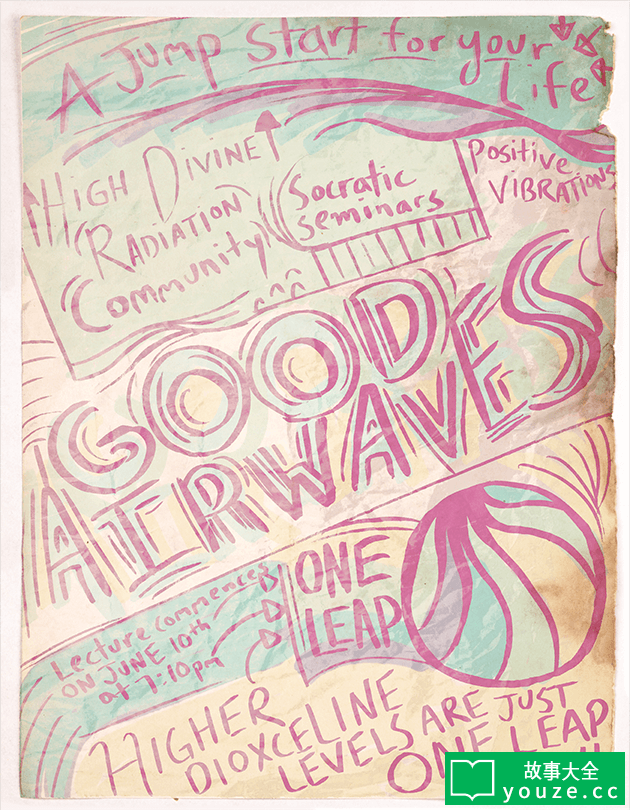 A Jump Start for your
Life
HIGH DIVINE
RADIATION
Community
Socratic
seminars
Positive
VIBRATIONS
GOODE
AIRWAVES
ONE
LEAP
Lecture commences
ON JUNE 10th
at 7:10pm
HIGHER
DIOXCELINE
LEVELS ARE JUST
ONE LEAP
故事大全
youze.cc